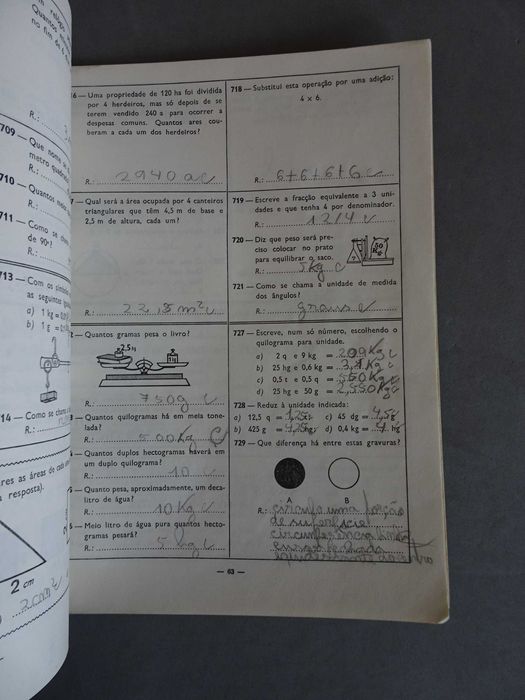 709 —
710 — Quantos
711 — Como se
de 90.º?
R.:
713 — Com os
as seguintes
a) 1 kg =
b) 1 g =
14 — Como se
R.:
res as áreas de cada
resposta).
2 cm
6 — Uma propriedade de 120 ha foi dividida
por 4 herdeiros, mas só depois de se
terem vendido 240 a para ocorrer a
despesas comuns. Quantos ares cou-
beram a cada um dos herdeiros?
R.: 2940 a c
7 — Qual será a área ocupada por 4 canteiros
triangulares que têm 4,5 m de base e
2,5 m de altura, cada um?
R.: 22,5 m² c
2 — Quantos gramas pesa o livro?
2,5 hg
R.: 750g c
3 — Quantos quilogramas há em meia tone-
lada?
R.: 500Kg C
— Quantos duplos hectogramas haverá em
um duplo quilograma?
R.: 10 c
— Quanto pesa, aproximadamente, um deca-
litro de água?
R.: 10 Kg c
5 — Meio litro de água pura quantos hecto-
gramas pesará?
R.: 5 hg c
718 — Substitui esta operação por uma adição:
4 × 6.
R.: 6+6+6+6 c
719 — Escreve a fracção equivalente a 3 uni-
dades e que tenha 4 por denominador.
R.: 12/4 c
720 — Diz que peso será pre-
ciso colocar no prato
para equilibrar o saco.
R.: 5Kg c
721 — Como se chama a unidade de medida
dos ângulos?
R.: graus c
727 — Escreve, num só número, escolhendo o
quilograma para unidade.
a) 2 q e 9 kg = 209Kg c
b) 25 hg e 0,6 kg = 3,1Kg c
c) 0,5 t e 0,5 q = 550Kg c
d) 25 hg e 50 g = 2,550Kg c
728 — Reduz à unidade indicada:
a) 12,5 q = 1,25t
c) 45 dg = 4,5g
b) 425 g = 4,25hg
d) 0,4 kg = 4 hg
729 — Que diferença há entre estas gravuras?
A B
R.: círculo uma porção
de superfície
circunferência linha
curva fechada
— 63 —